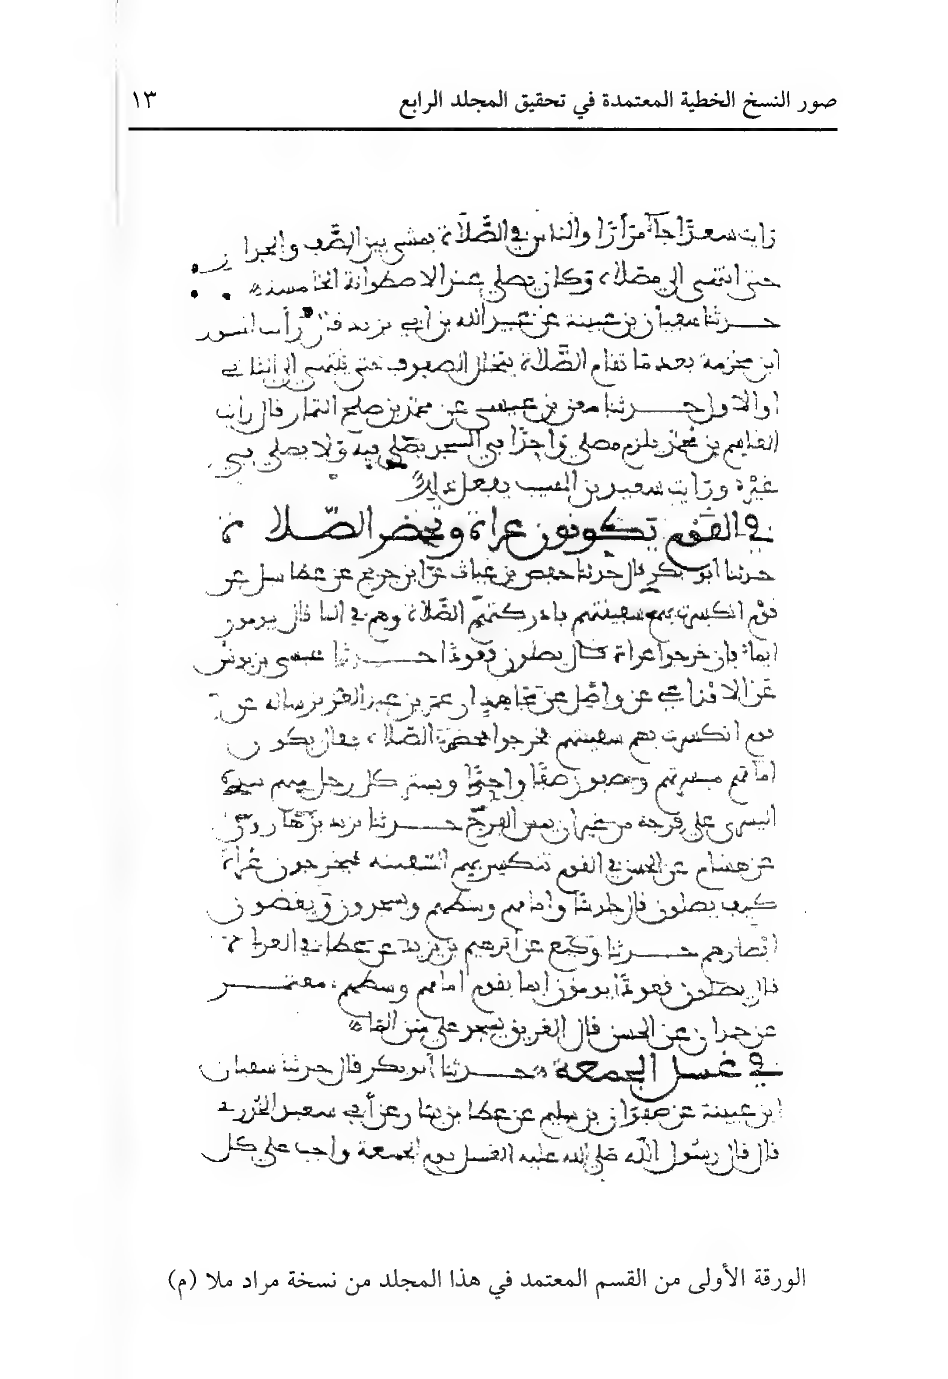 صور النسخ الخطية المعتمدة في تحقيق المجلد الرابع ١٣
رايت سعدا جا مرارا والناس في الصلاة يمشي بين الصف والجدار
حتى انتهى الى مصلاه وكان يصلي عند الاصطوانة الخامسة
حدثنا سفيان بن عيينة عن عبيد الله بن ابي يزيد قال رأيت المسور
ابن مخرمة بعد ما تقام الصلاة يتخلل الصفوف حتى ينتهي الى الثاني
او الاول حدثنا معن بن عيسى عن محمد بن صالح التمار قال رايت
القاسم بن محمد يلزم مصلى واحدا في المسجد يصلي فيه ولا يصلي في
غيره ورايت سعيد بن المسيب يفعل ذلك
في القوم يكونون عراة وتحضر الصلاة
حدثنا ابو بكر قال حدثنا حفص بن غياث عن ابن جريج عن عطا سئل عن
قوم انكسرت بهم سفينتهم فادركتهم الصلاة وهم في الما قال يومون
ايماء فان خرجوا عراة قال يصلون قعودا حدثنا عيسى بن يونس
عن الاوزاعي عن واصل عن مجاهد ان عمر بن عبد العزيز ساله عن
قوم انكسرت بهم سفينتهم فخرجوا فحضرت الصلاة فقال يكون
امامهم ميسرتهم ويصفون صفا واحدا ويستر كل رجل منهم بيده
اليسرى على فرجه من غير ان يمس الفرج حدثنا يزيد بن هارون
عن هشام عن الحسن في القوم تنكسر بهم السفينة فيخرجون عراة
كيف يصلون قال جلوسا وامامهم وسطهم ويسجدون ويغضون
ابصارهم حدثنا وكيع عن ابرهيم بن يزيد عن عطا في العراة
قال يصلون قعودا يومون ايما يقوم امامهم وسطهم معتمر
عن حدثان عن الحسن قال الغريق يسجد على متن الماء
في غسل الجمعة حدثنا ابو بكر قال حدثنا سفيان
ابن عيينة عن صفوان بن سليم عن عطا بن يسار عن أبي سعيد الخدري
قال قال رسول الله صلى الله عليه الغسل يوم الجمعة واجب على كل
الورقة الأولى من القسم المعتمد في هذا المجلد من نسخة مراد ملا (م)